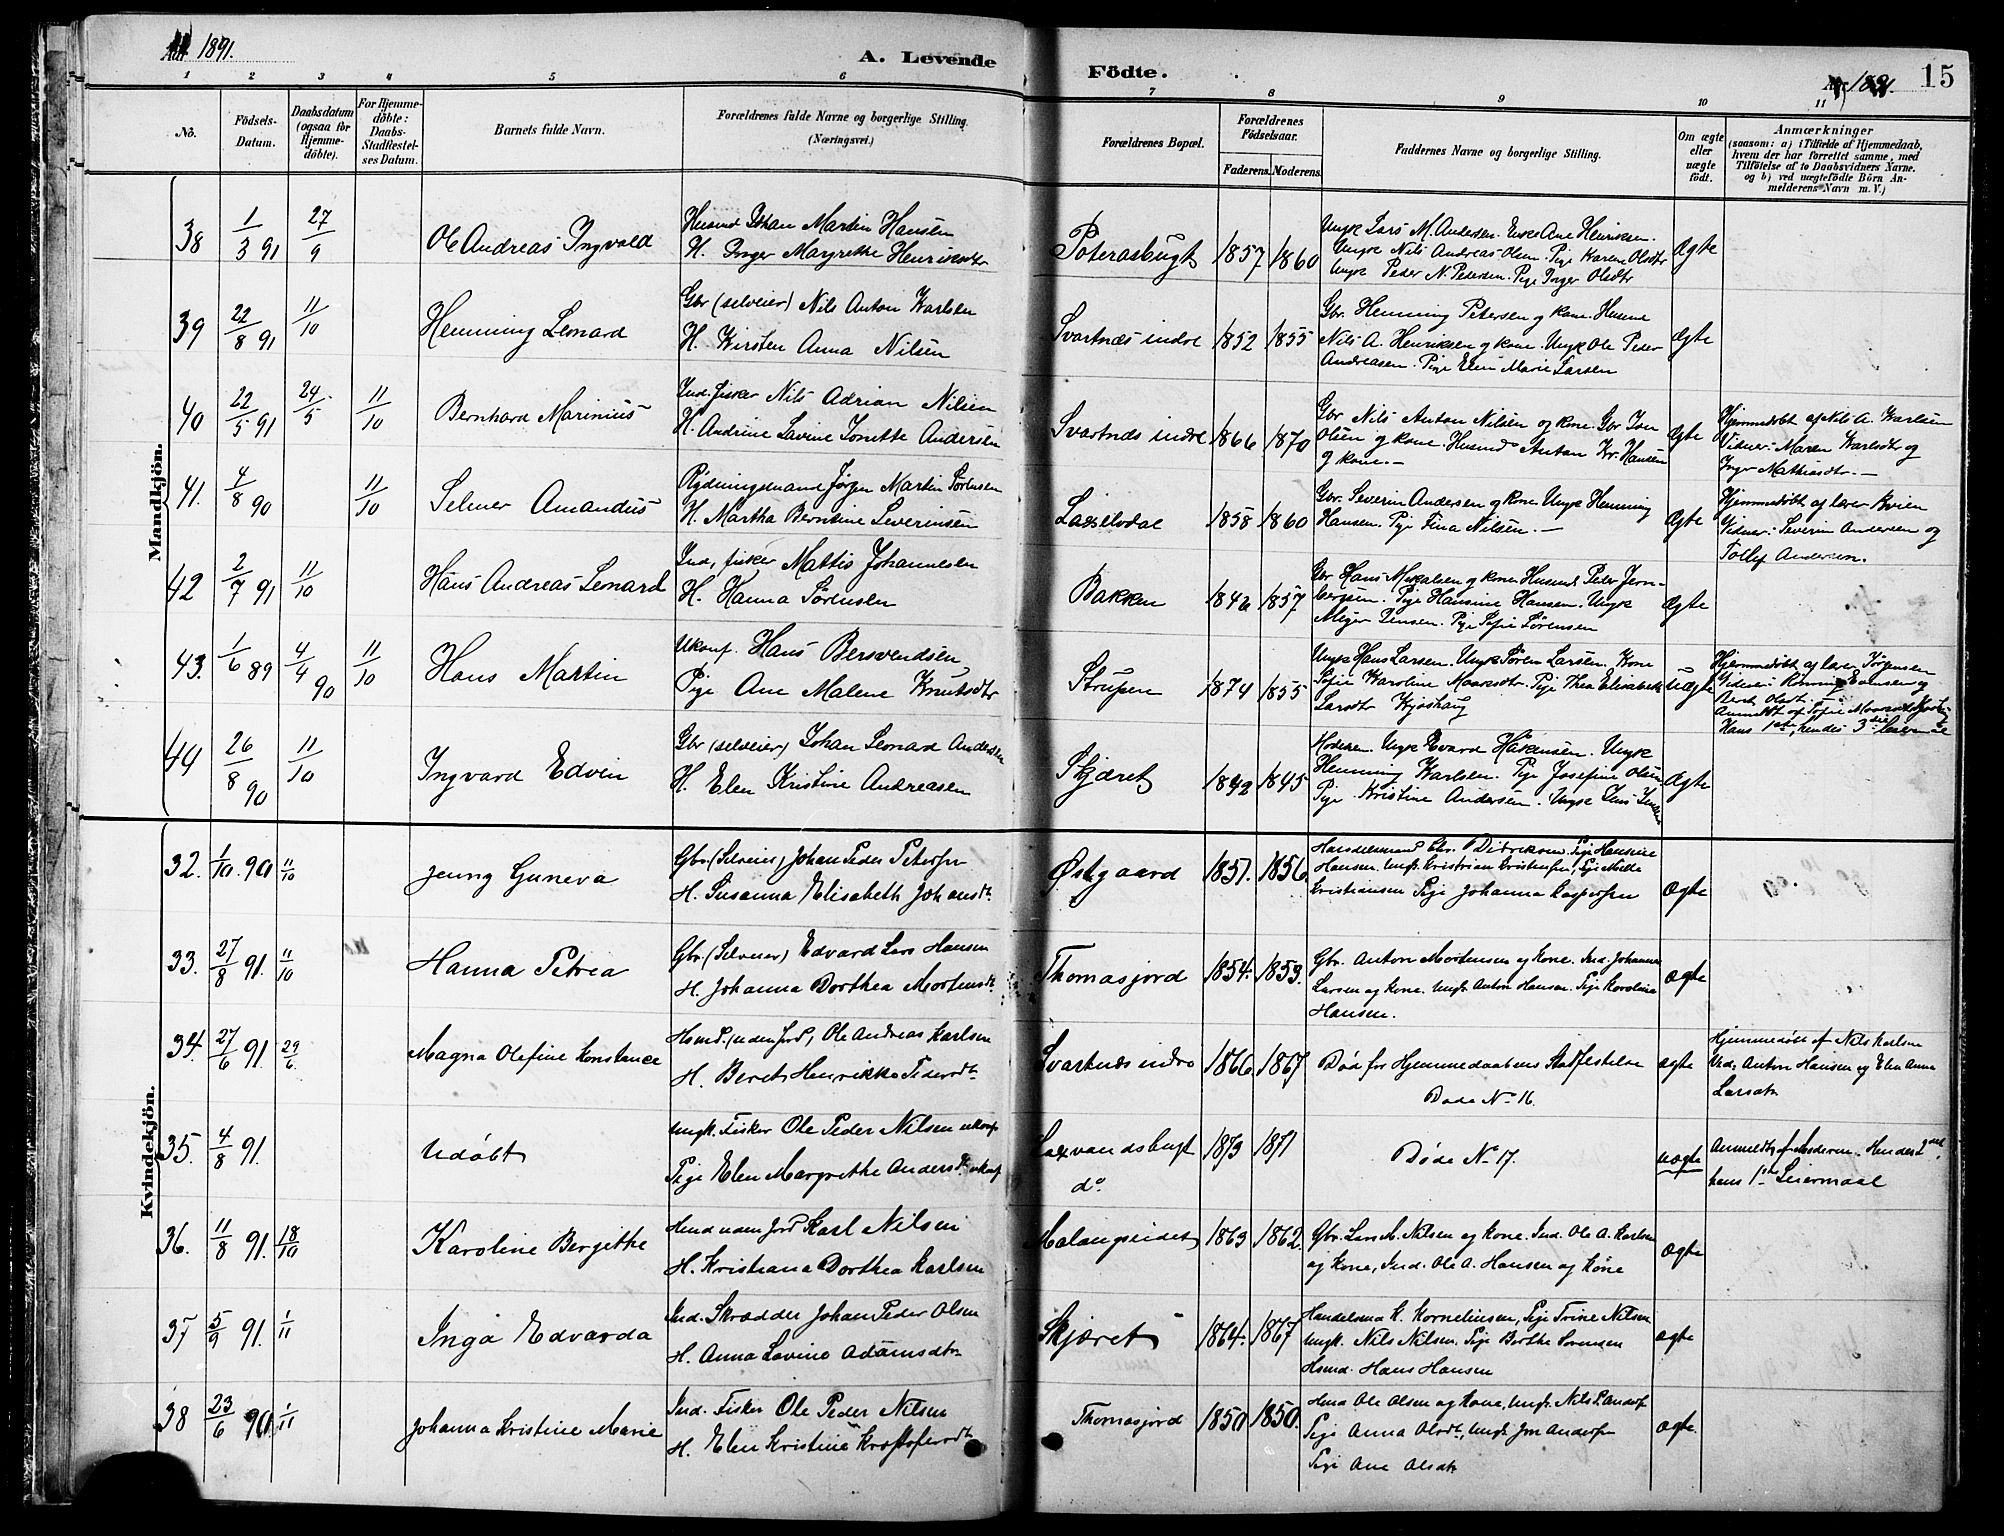 Aar 1891.
A. Levende
Födte.
1891.
15
1 2 3 4 5 6 7 8 9 10 11
No.
Födsels-
Datum.
Daabsdatum
(ogsaa for
Hjemme-
döbte).
For Hjemme-
döbte:
Daabs-
Stadfestel-
ses Datum.
Barnets fulde Navn.
Forældrenes fulde Navne og borgerlige Stilling.
(Næringsvei.)
Forældrenes Bopæl.
Forældrenes
Födselsaar.
Faderens. Moderens.
Faddernes Navne og borgerlige Stilling.
Om ægte
eller
uægte
födt.
Anmærkninger
(saasom: a) i Tilfælde af Hjemmedaab,
hvem der har forrettet samme, med
Tilföielse af to Daabsvidners Navne.
og b) ved uægtefödte Börn An-
melderens Navn m. V.)
Mandkjön.
38 1/3 91 27/9 Ole Andreas Ingvald
Husmd Johan Martin Hansen
H. Inger Margrethe Henriksdtr
Poterasbugt 1857 1860
Ungk Lars M. Andersen. Enke Ane Henriksen.
Ungk Nils Andreas Olsen Pige Karen Olsdtr
Ungk Peder N. Pedersen. Pige Inger Olsdtr
Ægte
39 22/8 91 11/10 Henning Leonard
Gbr (selveier) Nils Anton Karlsen
H. Kirsten Anna Nilsen
Svartnæs indre 1852 1855
Gbr. Henning Petersen og kone. Husmd
Nils A. Henriksen og kone. Ungk Ole Peder
Andreasen. Pige Elen Marie Larsen
Ægte
40 22/5 91 24/5 11/10 Bernhard Marinius
Ind. fisker Nils Adrian Nilsen
H. Andrine Lavine Jonette Andersen
Svartnæs indre 1866 1870
Gbr Nils Anton Nilsen og kone. Gbr Iver
Olsen og kone. Husmd Anton Kr. Hansen
og kone.—
Ægte
Hjemmedøbt af Nils A. Karlsen
Vidner: Maren Karlsdtr og
Inger Mathisdtr.—
41. 4/8 90 11/10 Selmer Amandus
Rydningsmand Jørgen Martin Sørensen
H. Martha Berntine Severinsen
Laxelvdal 1858 1860
Gbr. Severin Andersen og kone. Ungk Henning
Hansen. Pige Fina Nilsen.—
Ægte
Hjemmedøbt af lærer Bvien
Vidner: Severin Andersen og
Tollef Andersen.
42 2/7 91 11/10 Hans Andreas Leonard
Ind. fisker Mattis Johannesen
H. Hanna Sørensen
Bakken 1846 1857
Gbr Hans Mikalsen og kone Husmd Peder Jern-
bergsen. Pige Hansine Hansen. Ungk
Meyer Jensen. Pige Sofie Sørensen
Ægte
43. 1/6 89 4/4 90 11/10 Hans Martin
Ukonf. Hans Bersvendsen,
Pige Ane Malene Knutsdtr
Strupen 1874 1855
Ungk Hans Larsen. Ungk Søren Larsen. Kone
Sofie Karoline Monsdtr. Pige Thea Elisabeth
Larsdtr Kjoshaug
Uægte
Hjemmedøbt af lærer Jørgensen
Vidner: Rønning Evensen og
Berit Olsdtr
Anmeldt af Sofie
Hans 1ste, hendes 3die Leiermaal
44 26/8 90 11/10 Ingvard Edvin
Gbr (selveier) Johan Leonard Andersen
H. Elen Kristine Andreasen
Skjæret 1842 1845
Moderen. Ungk Evard Håkensen. Ungk
Henning Karlsen. Pige Josefine Olsen
Pige Kristine Andersen. Ungk Jens
Ægte
Kvindekjön.
32. 1/10. 90 11/10 Jenny Guneva
Gbr. (Selveier) Johan Peder Peterssen
H. Susanna Elisabeth Johansdt.
Østgaard 1851. 1856.
Handelsmand Chr. Didriksen. Pige Hansine
Hansen. Ungk. Kristian Kristensen, Pige
Kristiansen Pige Johanna Kasperssen
Ægte
33. 27/8 91. 11/10 Hanna Petrea
Gbr. (Selveier) Edvard Lars Hansen
H. Johanna Dorthea Mortensdt.
Thomasjord 1854. 1853.
Gbr. Anton Mortensen og Kone. Ind. Johannes
Larsen og Kone. Ungk. Anton Hansen. Pige Karolina
Hansen.
Ægte
34. 27/6 91 29/6 Magna Olefine Konstance
Hsmd. (uden jord) Ole Andreas Karlsen
H. Beret Henrikke Pedersdt.
Svartnæs indre 1866. 1867
Død før Hjemmedaabens Stadfestelse
Døde No 16.
ægte
Hjemmedøbt af Nils Karlsen
Vid: Anton Hansen og Elen Anna
Larsdtr
35. 4/8 91. Udøbt
Ungk. Fisker Ole Peder Nilsen ukonf
Pige Elen Margrethe Andersdt. ukonf
Laxvandsbugt 1873 1871
do.
Døde No 17.
uægte
Anmeldt af Moderen. Hendes 2det
hans 1ste Leiermaal
36. 11/8 91. 18/10 Karoline Bergitte
Hsmd uden jord Karl Nilsen
H. Kristiana Dorthea Karlsen
Malangseidet 1863 1862.
Gbr. Lars M. Nilsen og Kone. Ind. Ole A. Karlsen
og Kone, Ind. Ole A. Hansen og Kone
ægte
37 5/9 91. 1/11 Inga Edvarda
Ind. Skrædder Johan Peder Olsen
H. Anna Lavine Adamsdtr
Skjæret 1864. 1867
Handelsmd K. Korneliussen, Pige Trine Nilsen
Ungk. Nils Nilsen, Pige Berthe Sørensen
Hsmd. Hans Hansen
ægte
38 23/6 90. 1/11 Johanna Kristine Marie
Ind. Fisker Ole Peder Nilsen
H. Elen Kristine Kristofersdt.
Thomasjord 1850 1850.
Hsmd Ole Olsen og Kone, Ungk. Nils P. Anders.
Pige Anna Olsdt., Ungk. Jon Anders.
Pige Ane Olsdtr
ægte.